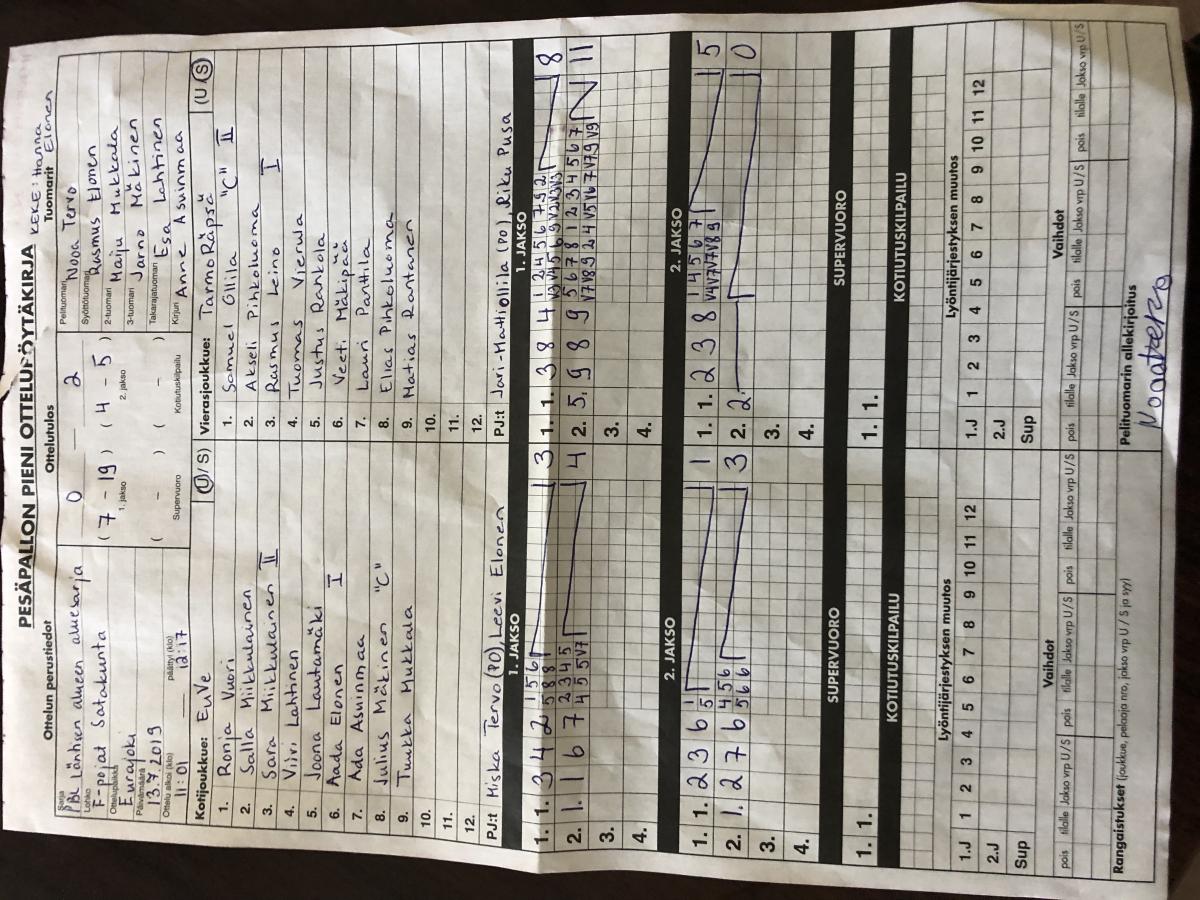 PESÄPALLON PIENI OTTELUPÖYTÄKIRJA
KEKE: Hanna Elonen
Ottelun perustiedot
Ottelutulos
Tuomarit
Sarja
PBL Läntisen alueen aluesarja
Lohko
F-pojat Satakunta
Ottelupaikka
Eurajoki
Päivämäärä
13.7.2019
Ottelu alkoi (klo) päättyi (klo)
11:01 — 12:17
0 — 2
( 7 - 19 ) ( 4 - 5 )
1. jakso 2. jakso
( - ) ( - )
Supervuoro Kotiutuskilpailu
Pelituomari Nooa Tervo
Syöttötuomari Rasmus Elonen
2-tuomari Maiju Mukkala
3-tuomari Jarno Mäkinen
Takarajatuomari Esa Lahtinen
Kirjuri Anne Asuinmaa
Kotijoukkue: EuVe (U/S)
1. Ronja Vuori
2. Salla Miikkulainen
3. Sara Miikkulainen II
4. Viivi Lahtinen
5. Joona Lautamäki
6. Aada Elonen I
7. Ada Asuinmaa
8. Julius Mäkinen "C"
9. Tuukka Mukkala
10.
11.
12.
PJ:t Miska Tervo (PO), Leevi Elonen
Vierasjoukkue: TarmoRäpsä (U/S)
1. Samuel Ollila "C" II
2. Akseli Pihkoluoma
3. Rasmus Leino I
4. Tuomas Vierula
5. Justus Rankola
6. Veeti Mäkipää
7. Lauri Panttila
8. Elias Pihkoluoma
9. Matias Rantanen
10.
11.
12.
PJ:t Jari-Matti Ollila (PO), Riku Pusa
1. JAKSO 1. JAKSO
1. 1. 3 4 2 1 5 6 3
5 8 8
2. 1. 1 6 7 2 3 4 5 4
4 5 5 V7
3.
4.
1. 1. 3 8 4 8
2. 5. 9 8 9 11
3.
4.
2. JAKSO 2. JAKSO
1. 1. 2 3 6 1 1
5
2. 1. 2 7 6 4 5 6 3
5 6 6
3.
4.
1. 1. 2 3 8 1 4 5 6 7 5
V4 V7 V7 V8 9
2. 2. 0
3.
4.
SUPERVUORO SUPERVUORO
1. 1.
1. 1.
KOTIUTUSKILPAILU KOTIUTUSKILPAILU
Lyöntijärjestyksen muutos
1.J 1 2 3 4 5 6 7 8 9 10 11 12
2.J
Sup
Lyöntijärjestyksen muutos
1.J 1 2 3 4 5 6 7 8 9 10 11 12
2.J
Sup
Vaihdot
pois tilalle Jakso vrp U/S pois tilalle Jakso vrp U/S pois tilalle Jakso vrp U/S
Vaihdot
pois tilalle Jakso vrp U/S pois tilalle Jakso vrp U/S pois tilalle Jakso vrp U/S
Rangaistukset (joukkue, pelaaja nro, jakso vrp U/S ja syy)
Pelituomarin allekirjoitus
Nooa Tervo